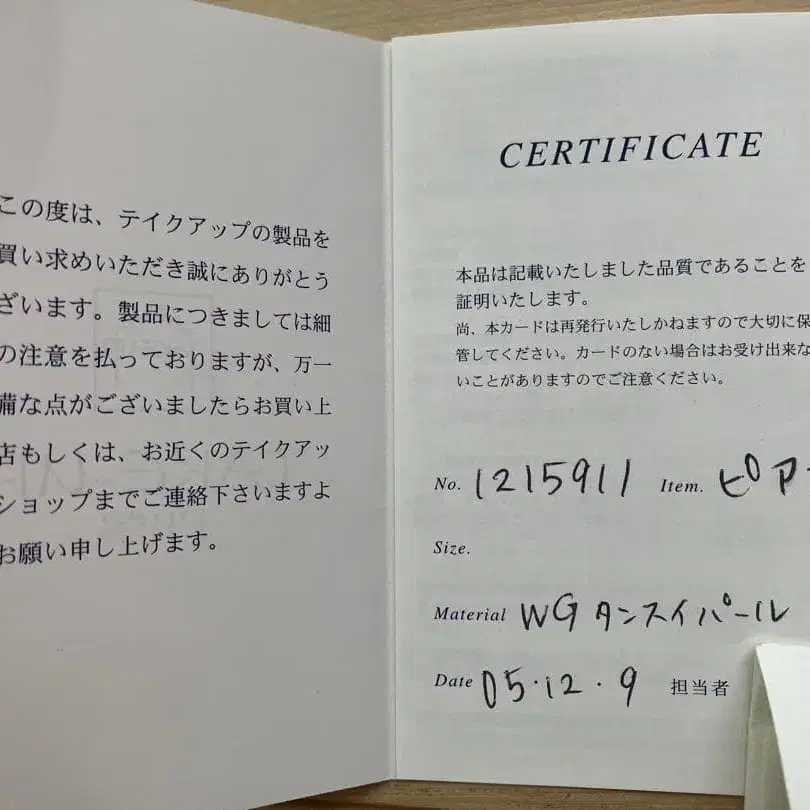 この度は、テイクアップの製品を
買い求めいただき誠にありがとう
ざいます。製品につきましては細
の注意を払っておりますが、万一
備な点がございましたらお買い上
店もしくは、お近くのテイクアッ
ショップまでご連絡下さいますよ
お願い申し上げます。
CERTIFICATE
本品は記載いたしました品質であることを
証明いたします。
尚、本カードは再発行いたしかねますので大切に保
管してください。カードのない場合はお受け出来な
いことがありますのでご注意ください。
No. 1215911 Item. ピア
Size.
Material WG タンスイパール
Date 05・12・9 担当者